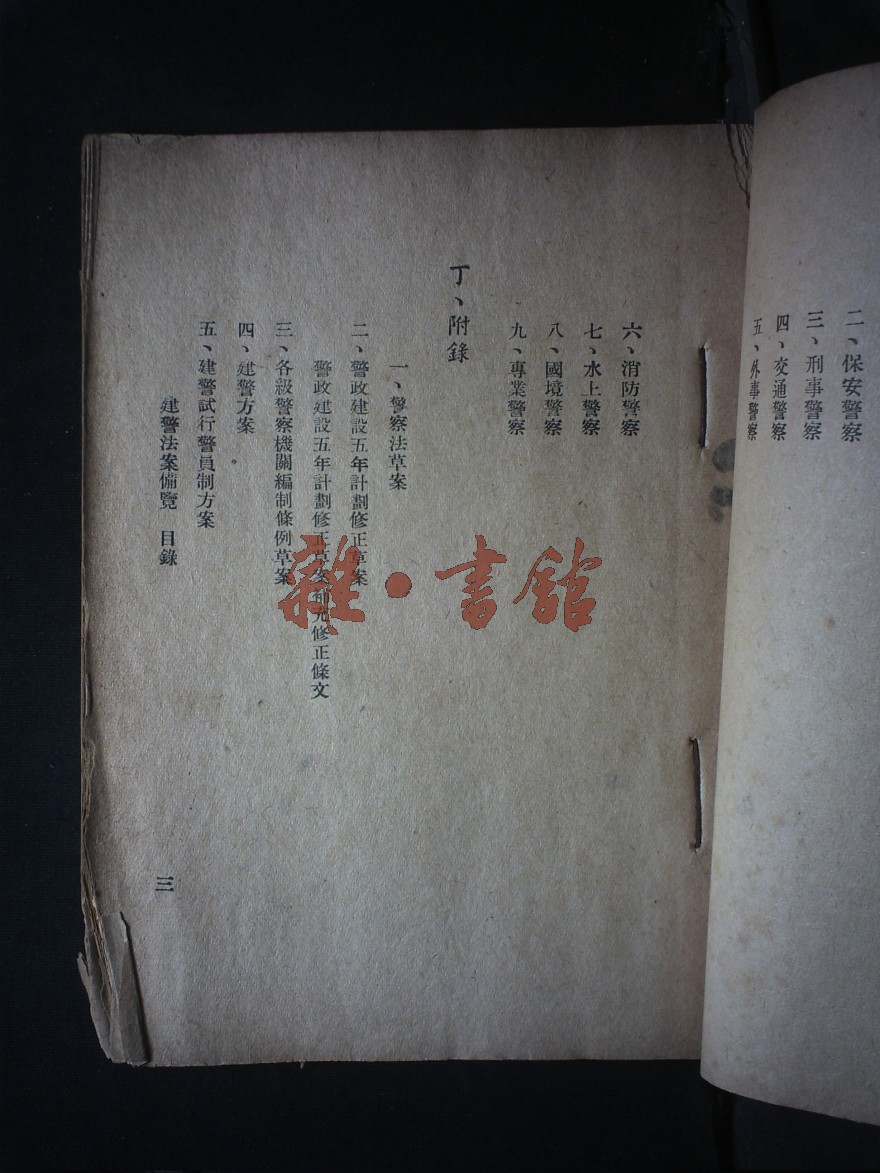 二、保安警察
三、刑事警察
四、交通警察
五、外事警察
六、消防警察
七、水上警察
八、國境警察
九、專業警察
丁、附錄
一、警察法草案
二、警政建設五年計劃修正草案
警政建設五年計劃修正草案補充修正條文
三、各級警察機關編制條例草案
四、建警方案
五、建警試行警員制方案
建警法案備覽 目錄
三
雜·書館